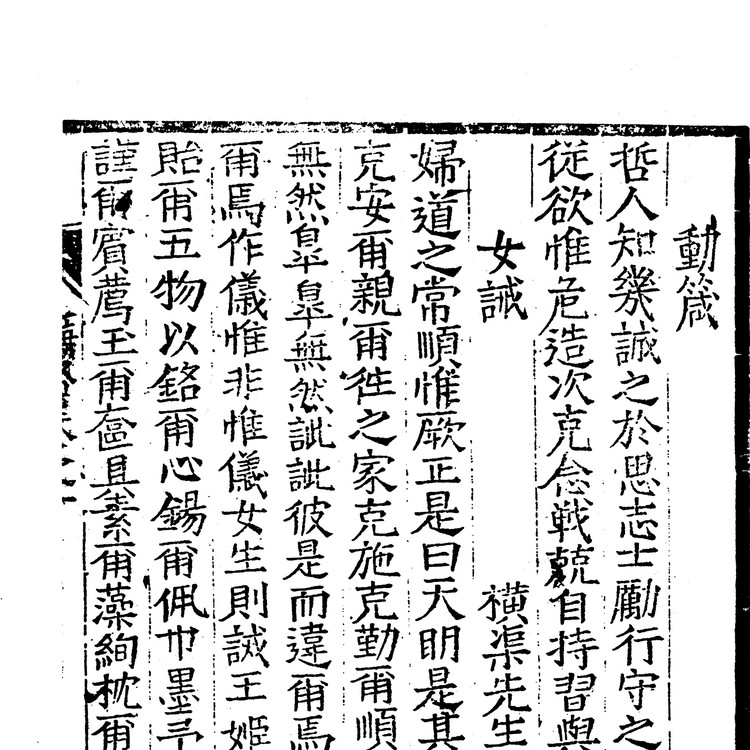 動箴
哲人知幾誠之於思志士勵行守之
從欲惟危造次克念戰兢自持習與
女誡 横渠先生
婦道之常順惟厥正是曰天明是其
克安爾親爾徃之家克施克勤爾順
無然臯臯無然訿訿彼是而違爾焉
爾焉作儀惟非惟儀女生則誡王姬
貽爾五物以銘爾心錫爾佩巾墨予
謹爾賓薦玉爾奩具素爾藻絢枕爾